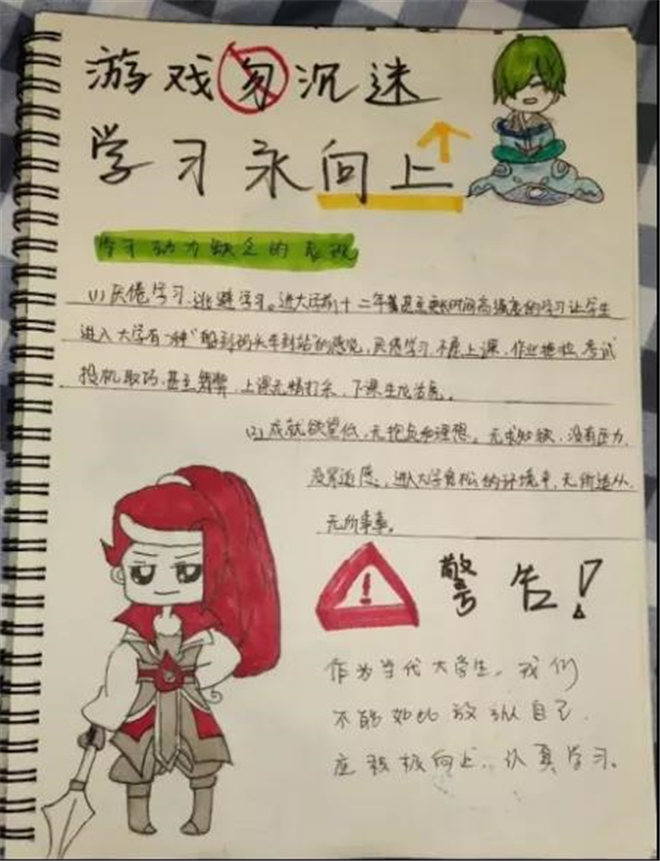 游戏勿沉迷
学习永向上
学习动力缺乏的表现
(1)厌倦学习,逃避学习。进大学前十二年甚至更长时间高强度的学习让学生
进入大学有一种"船到码头车到站"的感觉,厌倦学习,不愿上课,作业拖拉,考试
投机取巧,甚至舞弊,上课无精打采,下课生龙活虎。
(2)成就欲望低,无抱负和理想。无求知欲,没有压力,
没紧迫感,进入大学宽松的环境中,无所适从,
无所事事。
警告!
作为当代大学生,我们
不能如此放纵自己.
应积极向上,认真学习.